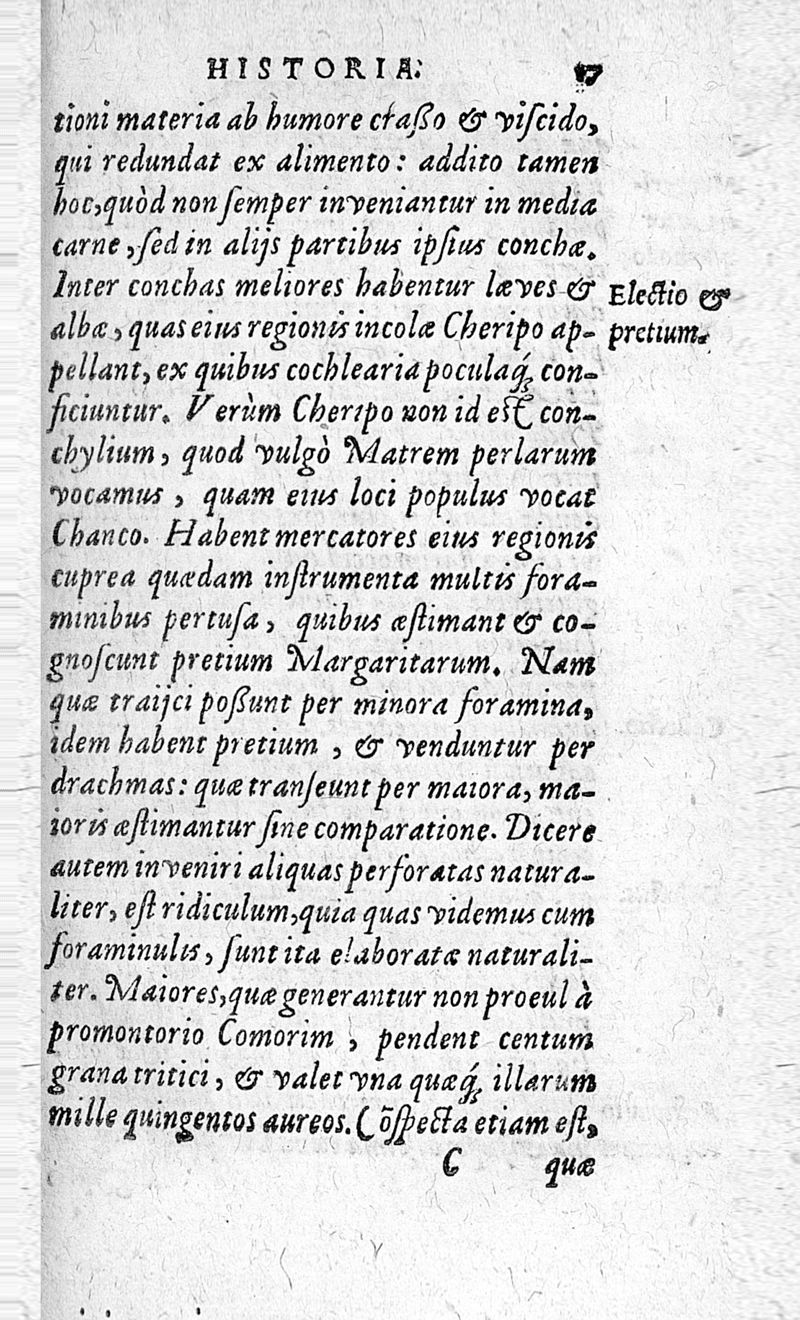 HISTORIA. 17
tioni materia ab humore craßo & viſcido,
qui redundat ex alimento: addito tamen
hoc, quòd non ſemper inveniantur in media
carne, ſed in alijs partibus ipſius conchæ.
Inter conchas meliores habentur læves &
Electio &
albæ, quas eius regionis incolæ Cheripo ap-
pretium.
pellant, ex quibus cochlearia poculaq́; con-
ficiuntur. Verùm Cheripo non id eſt con-
chylium, quod vulgò Matrem perlarum
vocamus, quam eius loci populus vocat
Chanco. Habent mercatores eius regionis
cuprea quædam inſtrumenta multis fora-
minibus pertuſa, quibus æſtimant & co-
gnoſcunt pretium Margaritarum. Nam
quæ traijci poßunt per minora foramina,
idem habent pretium, & venduntur per
drachmas: quæ tranſeunt per maiora, ma-
ioris æſtimantur ſine comparatione. Dicere
autem inveniri aliquas perforatas natura-
liter, eſt ridiculum, quia quas videmus cum
foraminulis, ſunt ita elaboratæ naturali-
ter. Maiores, quæ generantur non proeul à
promontorio Comorim, pendent centum
grana tritici, & valet vna quæq́; illarum
mille quingentos aureos. Cõſpecta etiam eſt,
C quæ